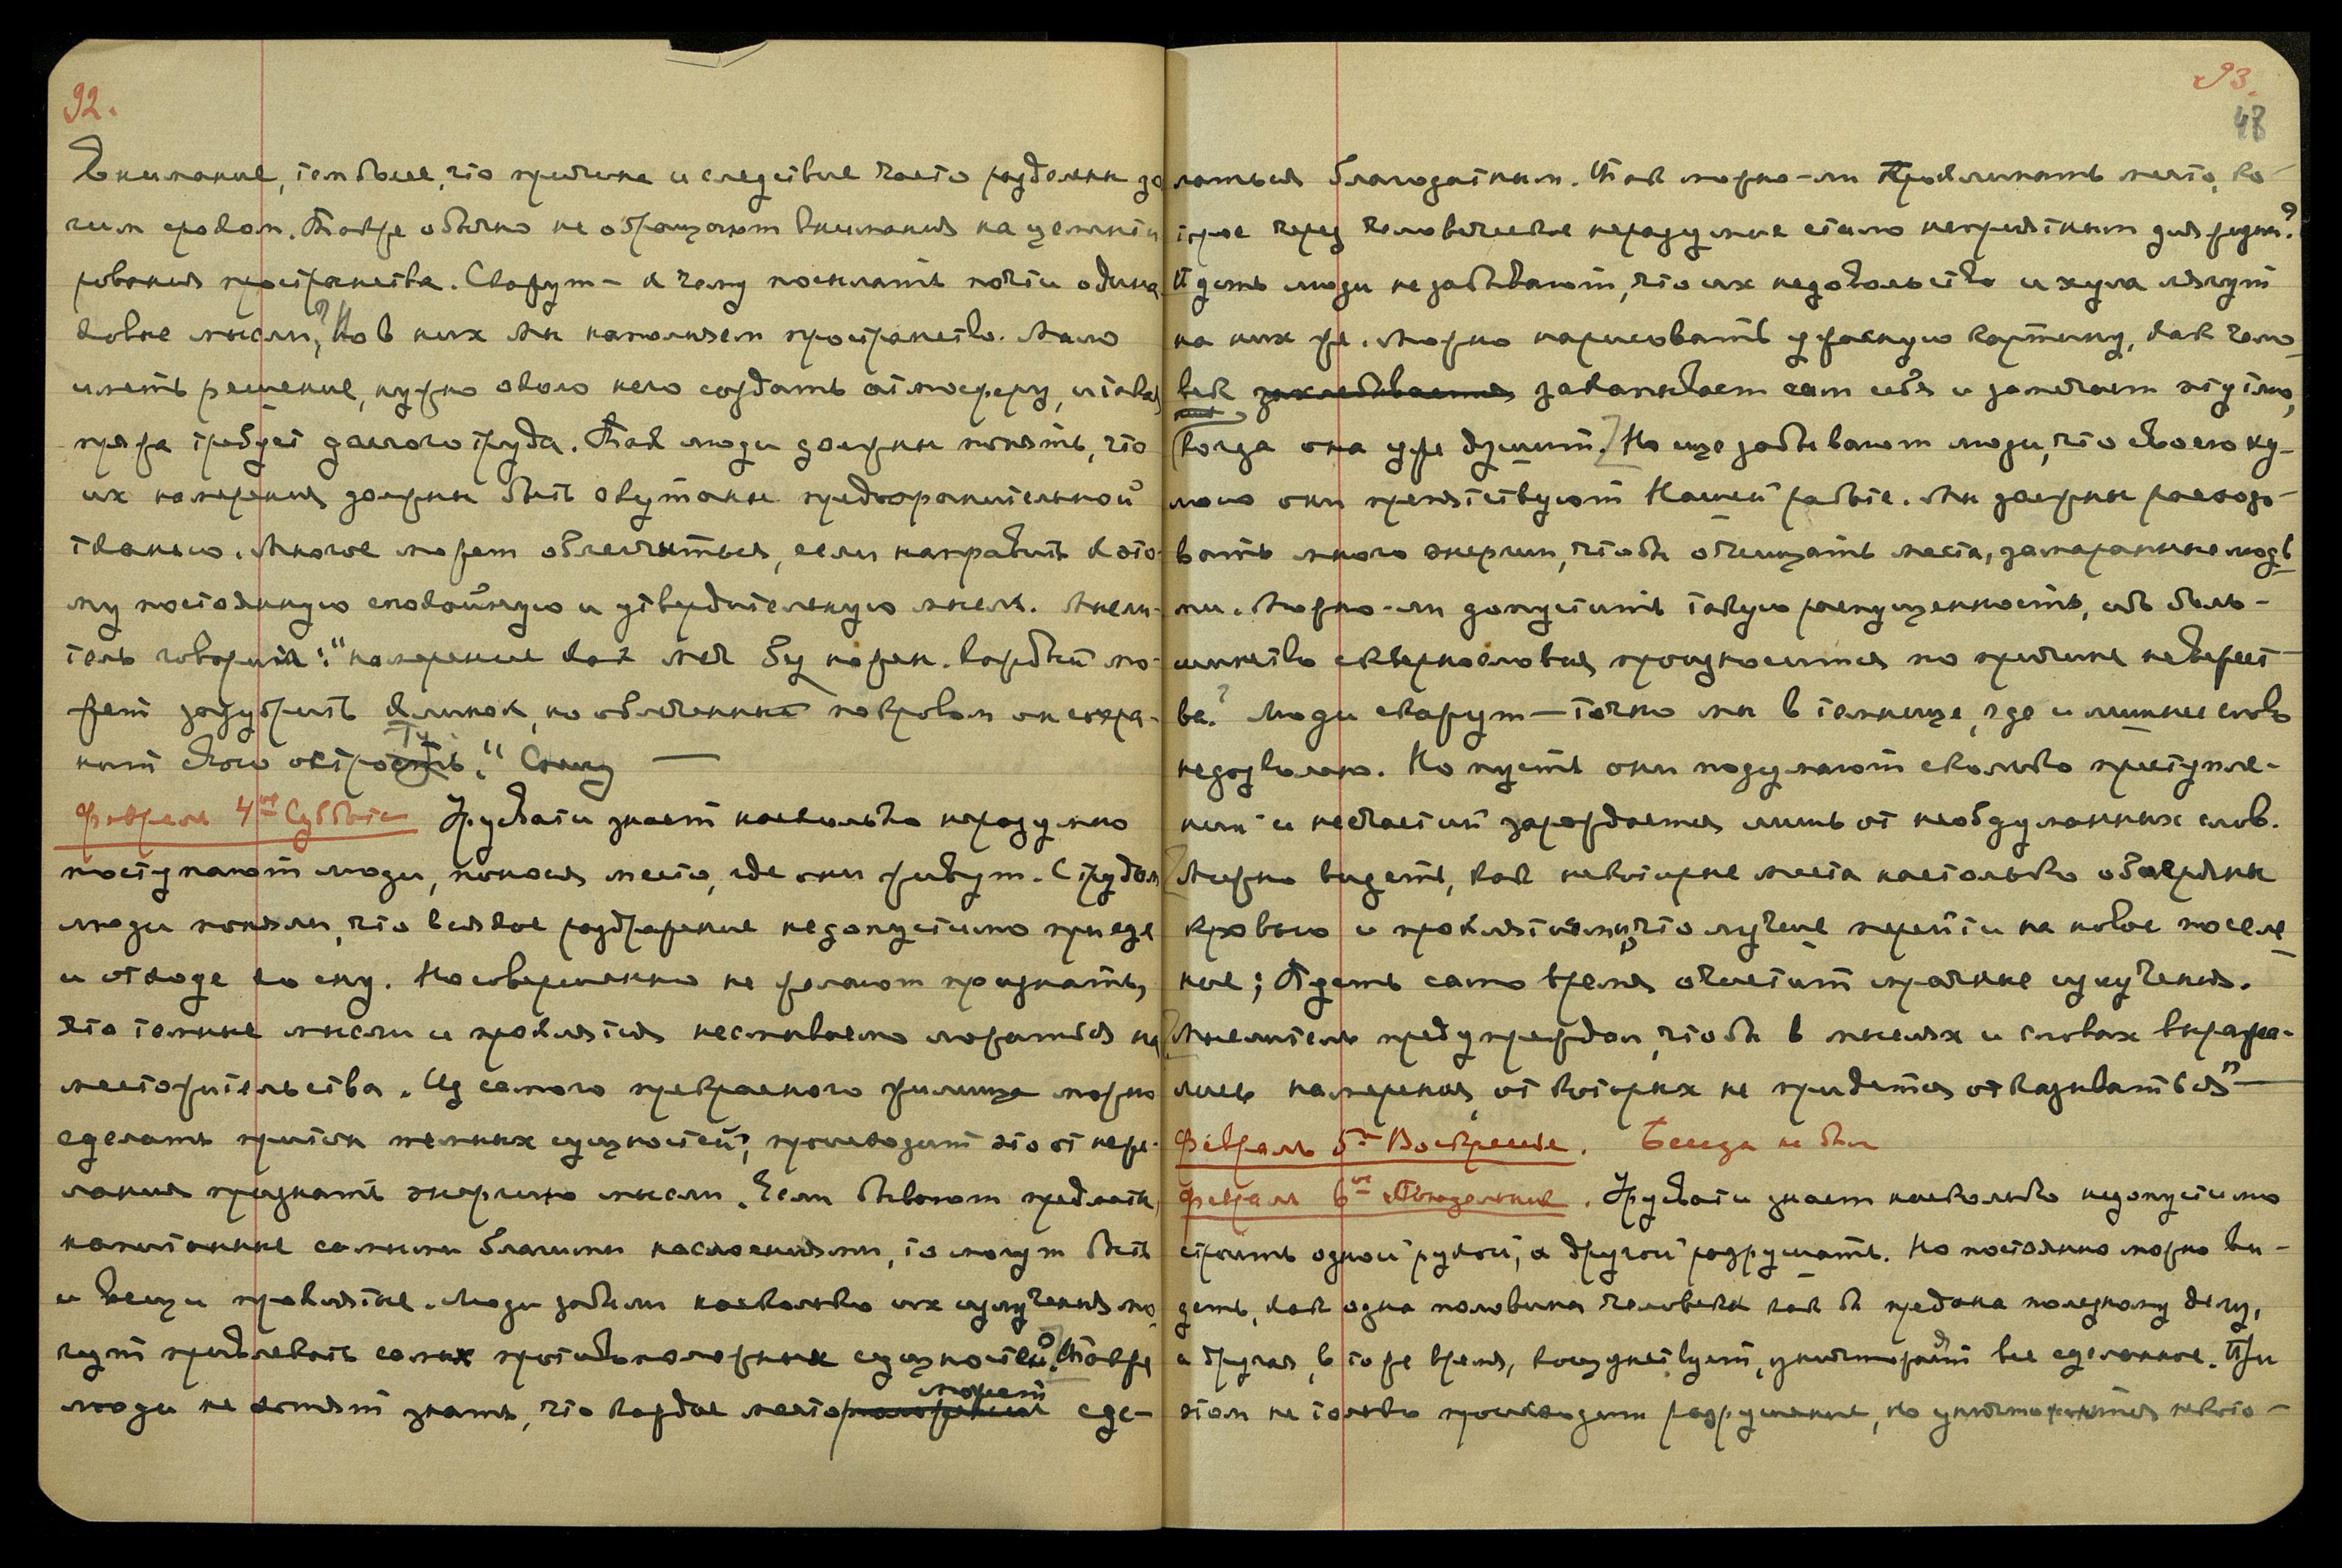 92.
Внимание, тем более, что причина и следствие часто разделены до
гим сроком. Также обычно не обращают внимания на цементи
рование пространства. Скажут – к чему посылать почти одина
ковые мысли? Но в них мы наполняем пространство. Мало
иметь решение, нужно около него создать атмосферу, и такая
пряжа требует долгого труда. Так люди должны понять, что
их намерения должны быть окутаны предохранительной
тканью. Многое может облегчиться, если направить к это-
му постоянную спокойную и утвердительную мысль. Мысли-
тель говорил: "намерение как меч без ножен. Каждый мо-
жет зазубрить клинок, но облеченный покровом он сохра-
нит свою остроту." Спешу —
Февраль 4ое Суббота Урусвати знает насколько неразумно
поступают люди, понося место, где они живут. С трудом
люди поняли, что всякое раздражение недопустимо при еде
и отходе ко сну. Но совершенно не желают признать,
что темные мысли и проклятия несмываемо ложатся на
местожительства. Из самого прекрасного жилища можно
сделать притон темных сущностей; происходит это от неже-
лания признать энергию мысли. Если бывают предметы,
напитанные самыми благими наслоениями, то могут быть
и вещи проклятые. Люди забыли насколько их излучения мо
гут привлекать самых противоположных сущностей. Также
люди не хотят знать, что каждое место может сде-
93.
48
латься благодатным. Так можно-ли проклинать место, ко-
торое через человеческое неразумие стало неприятным для жизни?
Пусть люди не забывают, что их недовольство и хула лягут
на них же. Можно нарисовать ужасную картину, как чело-
век закапывает сам себя и замечает эту тьму,
(когда она уже душит.) Но еще забывают люди, что своею ху-
лою они препятствуют Нашей работе. Мы должны расходо-
вать много энергии, чтобы очищать места, замаранные людь
ми. Можно-ли допустить такую распущенность, ибо боль-
шинство сквернословия произносится по причине невежест-
ва? Люди скажут — точно мы в темнице, где и лишнее слово
недозволено. Но пусть они подумают сколько преступле-
ний и несчастий зарождается лишь от необдуманных слов.
Можно видеть, как некоторые места настолько обагрены
кровью и проклятиями, что лучше перейти на новое поселе
ние; Пусть само время очистит мрачные излучения.
Мыслитель предупреждал, чтобы в мыслях и словах выража-
лись намерения, от которых не придется отказываться" —
Февраль 5ое Воскресенье. Беседа не была
Февраль 6ое Понедельник. Урусвати знает насколько недопустимо
строить одной рукой, а другой разрушать. Но постоянно можно ви-
деть, как одна половина человека как бы предана полезному делу,
а другая, в то же время, кощунствует, уничтожает все сделанное. При
этом не только происходит разрушение, но уничтожается некото-